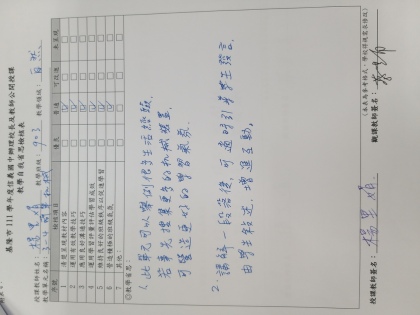 基隆市 111 學年度信義國中辦理校長及教師公開授課
教學自我省思檢核表
授課教師姓名： 楊里娟 教學班級： 903 教學領域： 自然
教學單元名稱： 3-4 簡單机械
序號 檢核項目 優良 普通 可改進 未呈現
1 清楚呈現教材內容 □ ☑ □ □
2 運用有效教學技巧 □ ☑ □ □
3 應用良好溝通技巧 □ ☑ □ □
4 運用學習評量評估學習成效 □ ☑ □ □
5 維持良好的班級秩序以促進學習 □ ☑ □ □
6 營造積極的班級氣氛 □ ☑ □ □
7 其他： □ □ □ □
◎教學省思：
1. 此單元可以舉例很多生活經驗，
若事先搜集更多的机械裝置，
可營造更好的學習氣氛.
2. 講解一段落後，可適時引導學生發言，
由學生敘述，增進互動。
(本表為參考格式，學校得視需求修改)
授課教師簽名： 楊里娟 觀課教師簽名：